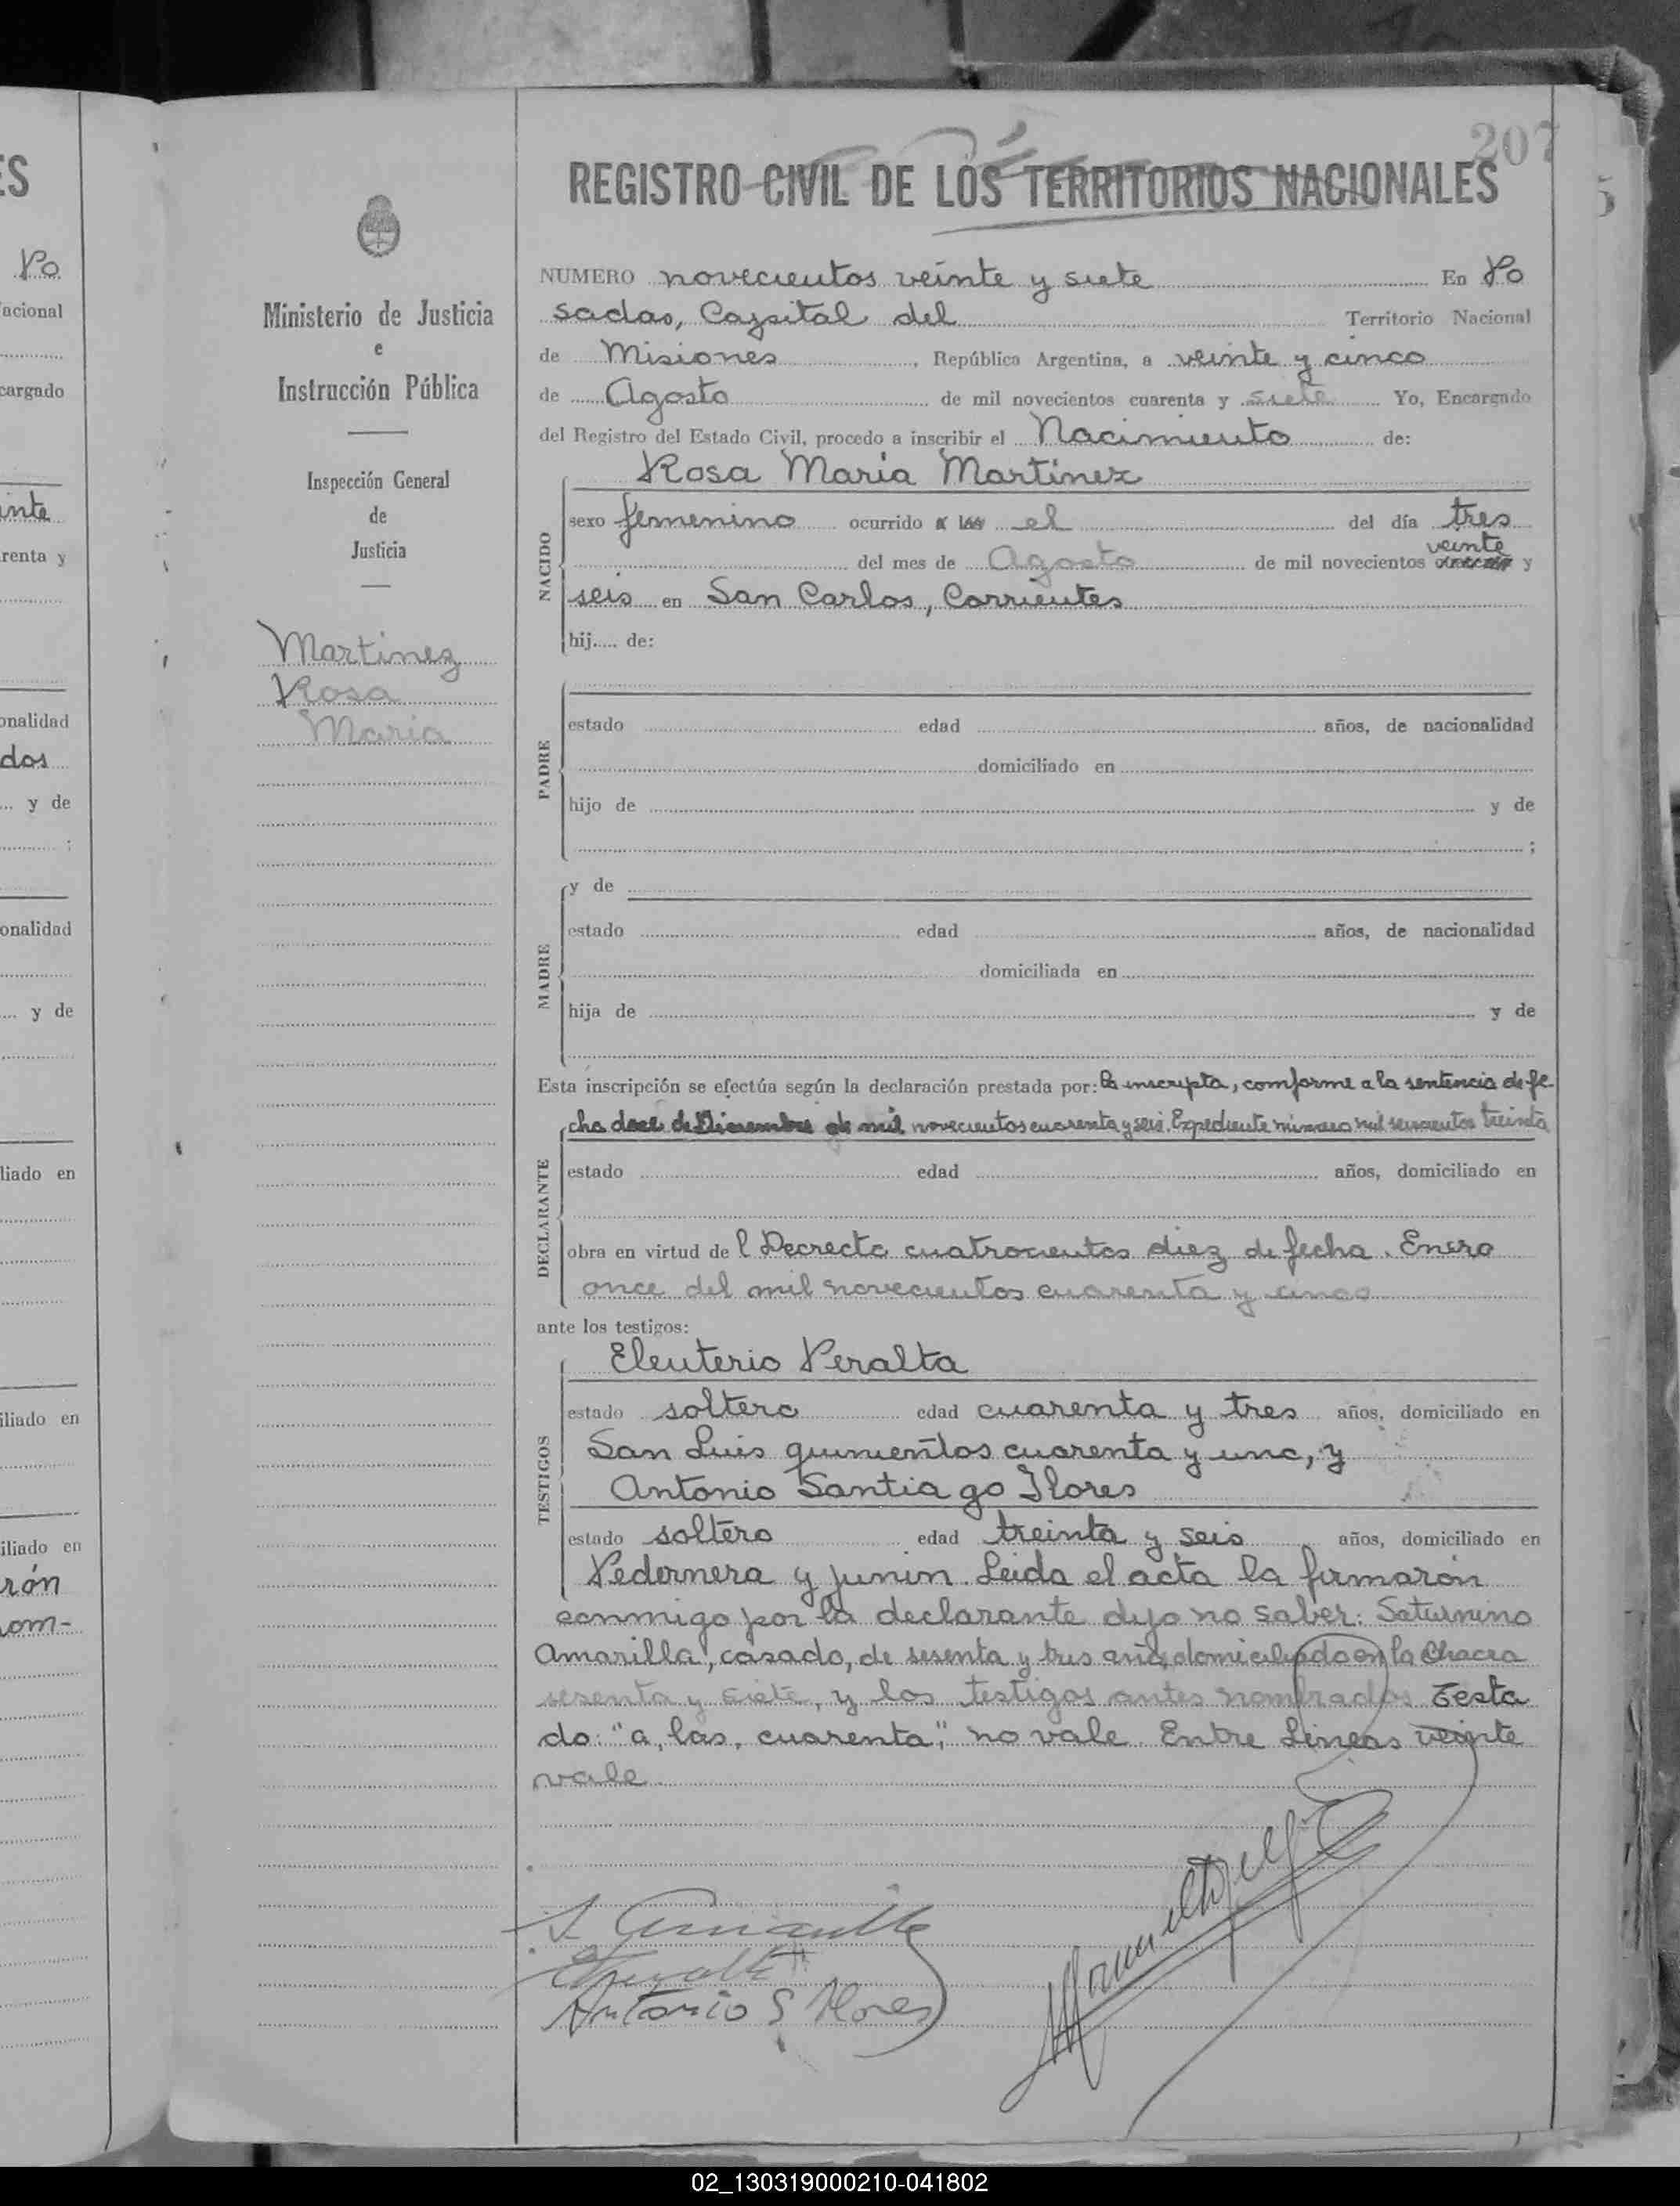 ES
Po
acional
cargado
inte
renta y
onalidad
dos
y de
;
onalidad
y de
liado en
iliado en
iliado en
rón
om-
Ministerio de Justicia
e
Instrucción Pública
Inspección General
de
Justicia
Martinez
Rosa
Maria
207
REGISTRO CIVIL DE LOS TERRITORIOS NACIONALES
NUMERO novecientos veinte y siete En Po
sadas, Capital del Territorio Nacional
de Misiones, República Argentina, a veinte y cinco
de Agosto de mil novecientos cuarenta y siete Yo, Encargado
del Registro del Estado Civil, procedo a inscribir el Nacimiento de:
Rosa Maria Martinez
NACIDO
sexo femenino ocurrido a las el del día tres
veinte
del mes de Agosto de mil novecientos y
seis en San Carlos, Corrientes
hij..... de:
PADRE
estado edad años, de nacionalidad
domiciliado en
hijo de y de
;
MADRE
y de
estado edad años, de nacionalidad
domiciliada en
hija de y de
Esta inscripción se efectúa según la declaración prestada por: la inscripta, comforme a la sentencia de fe-
cha doce de Diciembre de mil novecientos cuarenta y seis. Expediente número mil seiscientos treinta
DECLARANTE
estado edad años, domiciliado en
obra en virtud de l Decreto cuatrocientos diez de fecha. Enero
once del mil novecientos cuarenta y cinco
ante los testigos:
TESTIGOS
Eleuterio Peralta
estado soltero edad cuarenta y tres años, domiciliado en
San Luis quinientos cuarenta y uno, y
Antonio Santiago Flores
estado soltero edad treinta y seis años, domiciliado en
Pedernera y Junin. Leida el acta la firmarón
conmigo por la declarante dijo no saber: Saturnino
Amarilla, casado, de sesenta y tres años, domiciliado en la Chacra
sesenta y siete, y los testigos antes nombrados Testa
do: "a, las, cuarenta", no vale. Entre Lineas veinte
vale.
S. Amarilla
EPeralta
Antonio S Flores
02_130319000210-041802